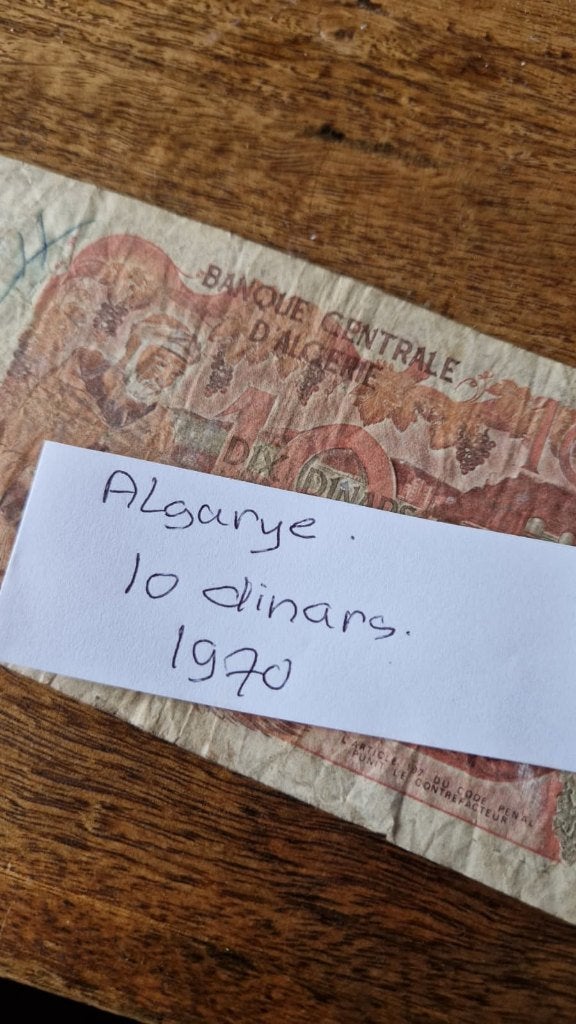 BANQUE CENTRALE
D'ALGERIE
10
DIX DINARS
ALgarye.
10 dinars.
1970
L'ARTICLE 197 DU CODE PENAL
PUNIT LE CONTREFACTEUR